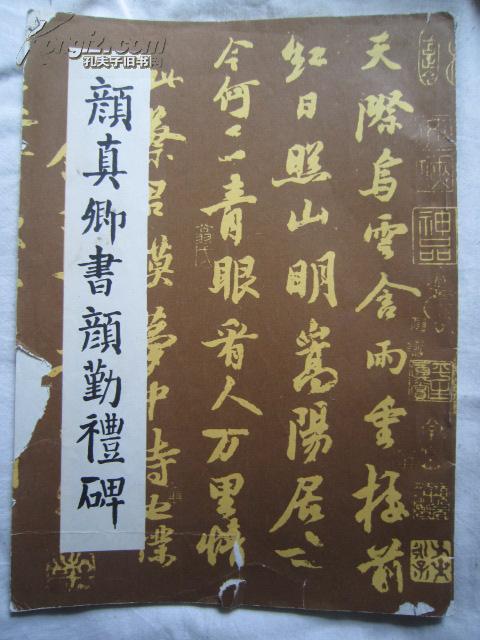 天際烏雲含雨重樓前
紅日照山明嵩陽居士
今何在青眼看人万里情
此蔡君謨夢中詩也僕
顏真卿書顏勤禮碑
神品
孔夫子旧书网